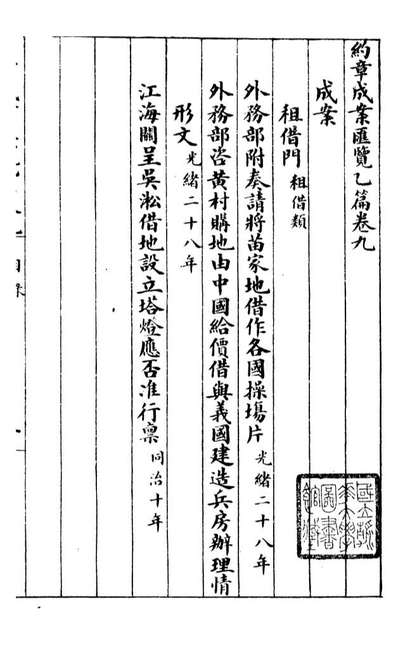 約章成案匯覽乙篇卷九
成案
租借門 租借類
外務部附奏請將苗家地借作各國操場片 光緒二十八年
外務部咨黃村購地由中國給價借與義國建造兵房辦理情
形文 光緒二十八年
江海關呈吳淞借地設立塔燈應否准行稟 同治十年